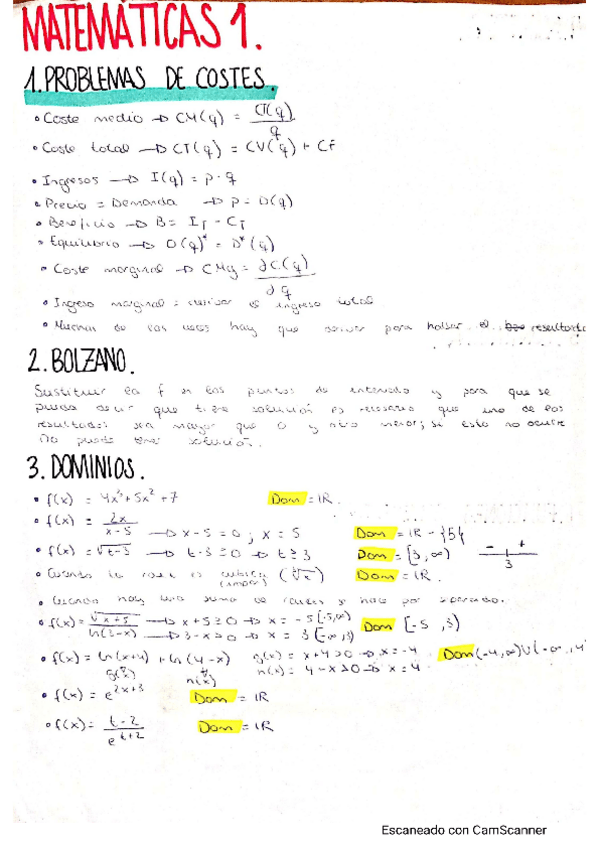 MATEMATICAS 1.
1. PROBLEMAS DE COSTES.
• Coste medio → CM(q) = CT(q) / q
• Coste total → CT(q) = CV(q) + CF
• Ingresos → I(q) = p · q
• Precio = Demanda → P = D(q)
• Beneficio → B = I_T - C_T
• Equilibrio → O(q)* = D*(q)
• Coste marginal → CMg = ∂C(q) / ∂q
• Ingreso marginal = derivar el ingreso total
• Muchas de las veces hay que derivar para hallar el resultado
2. BOLZANO.
Sustituir la f en los puntos de intervalo y para que se
pueda decir que tiene solución es necesario que uno de los
resultados sea mayor que 0 y otro menor, si esto no ocurre
no puede tener solución.
3. DOMINIOS.
• f(x) = 4x³+5x²+7 Dom = IR.
• f(x) = 2x / x-5 → x-5=0; x=5 Dom = IR - {5}
• f(x) = √t-3 → t-3≥0 → t≥3 Dom = [3,∞) - + 3
• Cuando la raíz es cúbica (impar) (∛x) Dom = IR.
• Cuando hay una suma de raíces se hace por separado.
• f(x) = √x+5 / ln(3-x) → x+5≥0 → x=-5 [-5,∞) → 3-x>0 → x=3 (-∞,3) Dom [-5,3)
• f(x) = ln(x+4) + ln(4-x) g(x) = x+4>0 → x=-4 Dom(-4,∞)∪(-∞,4
g(x) h(x) h(x) = 4-x>0 → x=4
• f(x) = e^2x+3 Dom = IR
• f(x) = t-2 / e^t+2 Dom = IR
Escaneado con CamScanner